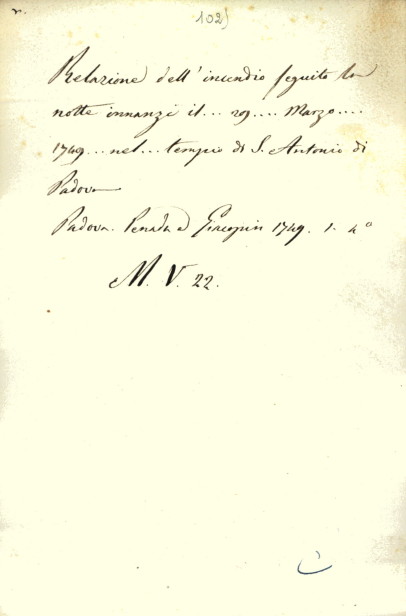 102)
Relazione dell' incendio seguito la
notte innanzi il... 29.... Marzo....
1749... nel... tempio di S. Antonio di
Padova
Padova. Penada e 1749. 1. 4°
M. V. 22.